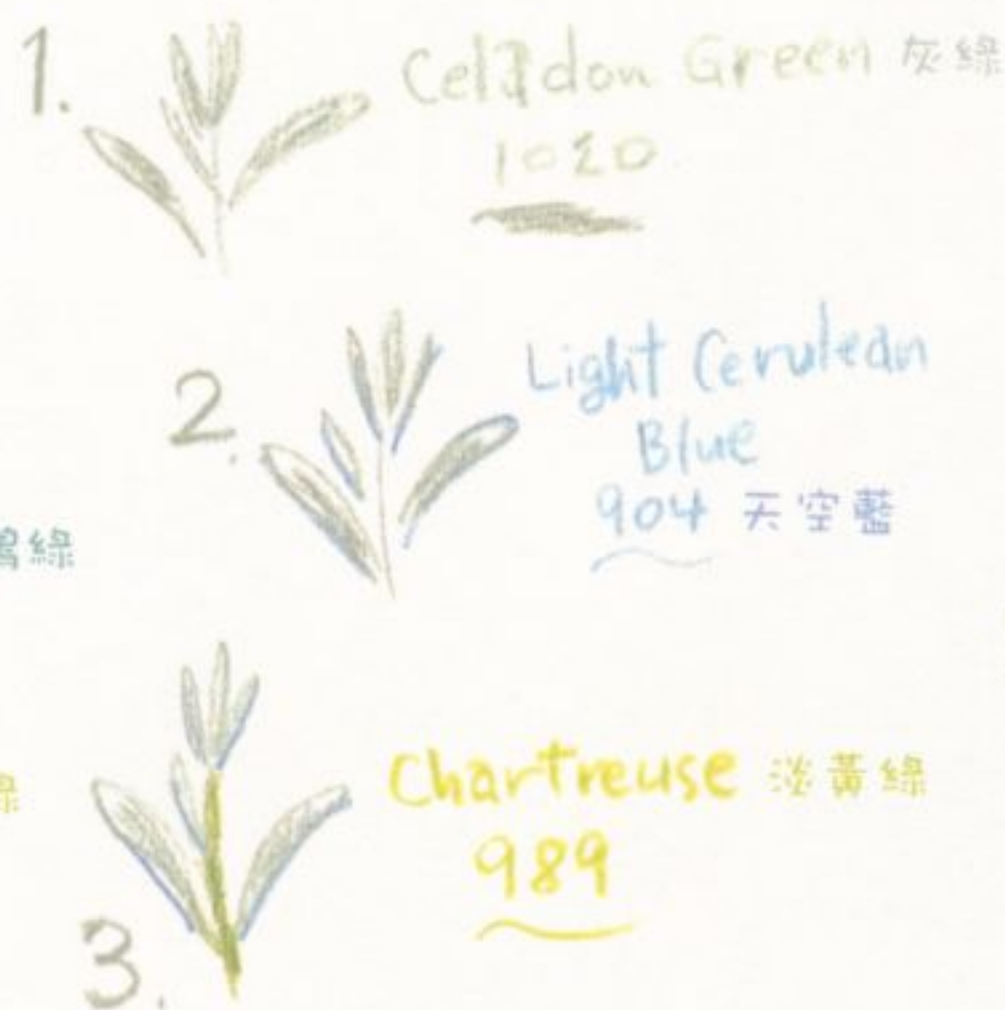 1.
Celadon Green 灰綠
1020
2.
Light Cerulean
Blue
904 天空藍
綠
Chartreuse 淡黃綠
989
綠
3.